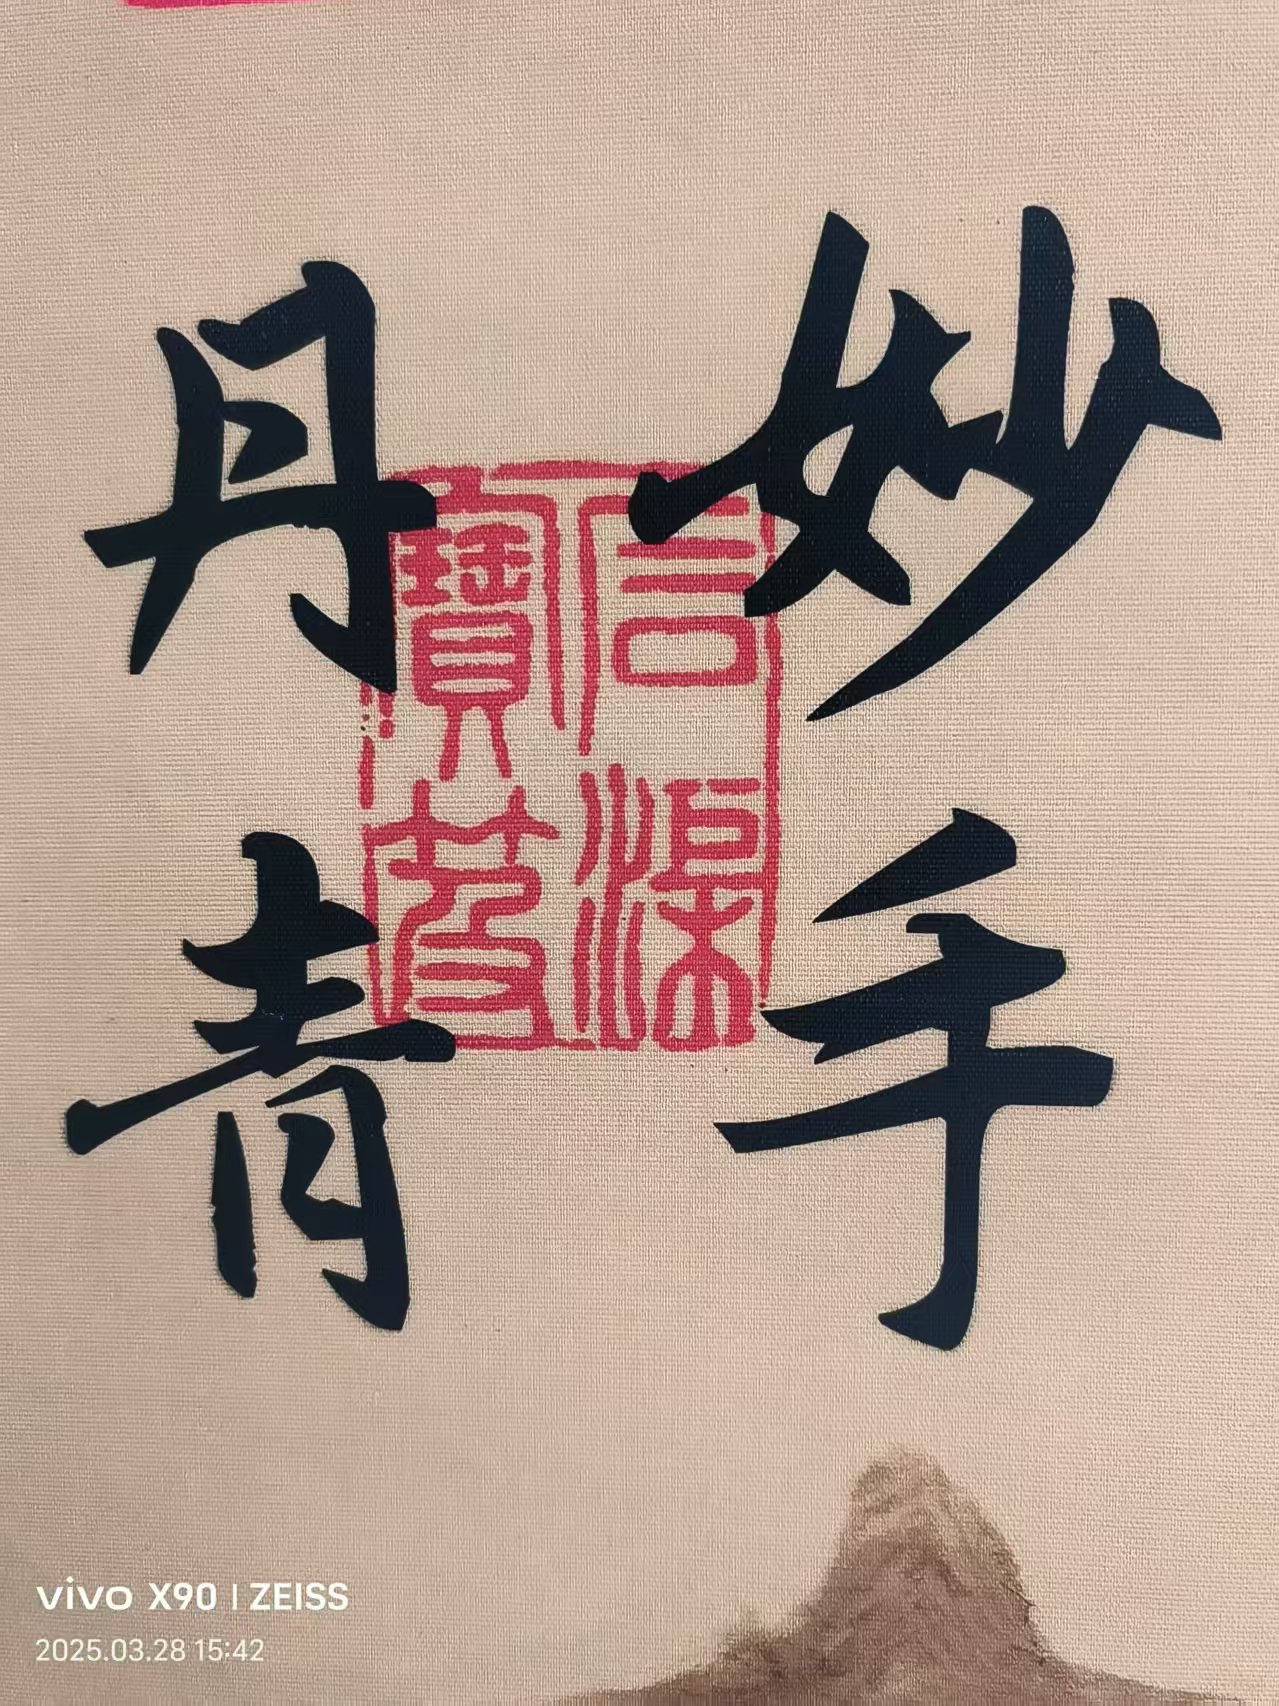 妙手
丹青
vivo X90 | ZEISS
2025.03.28 15:42